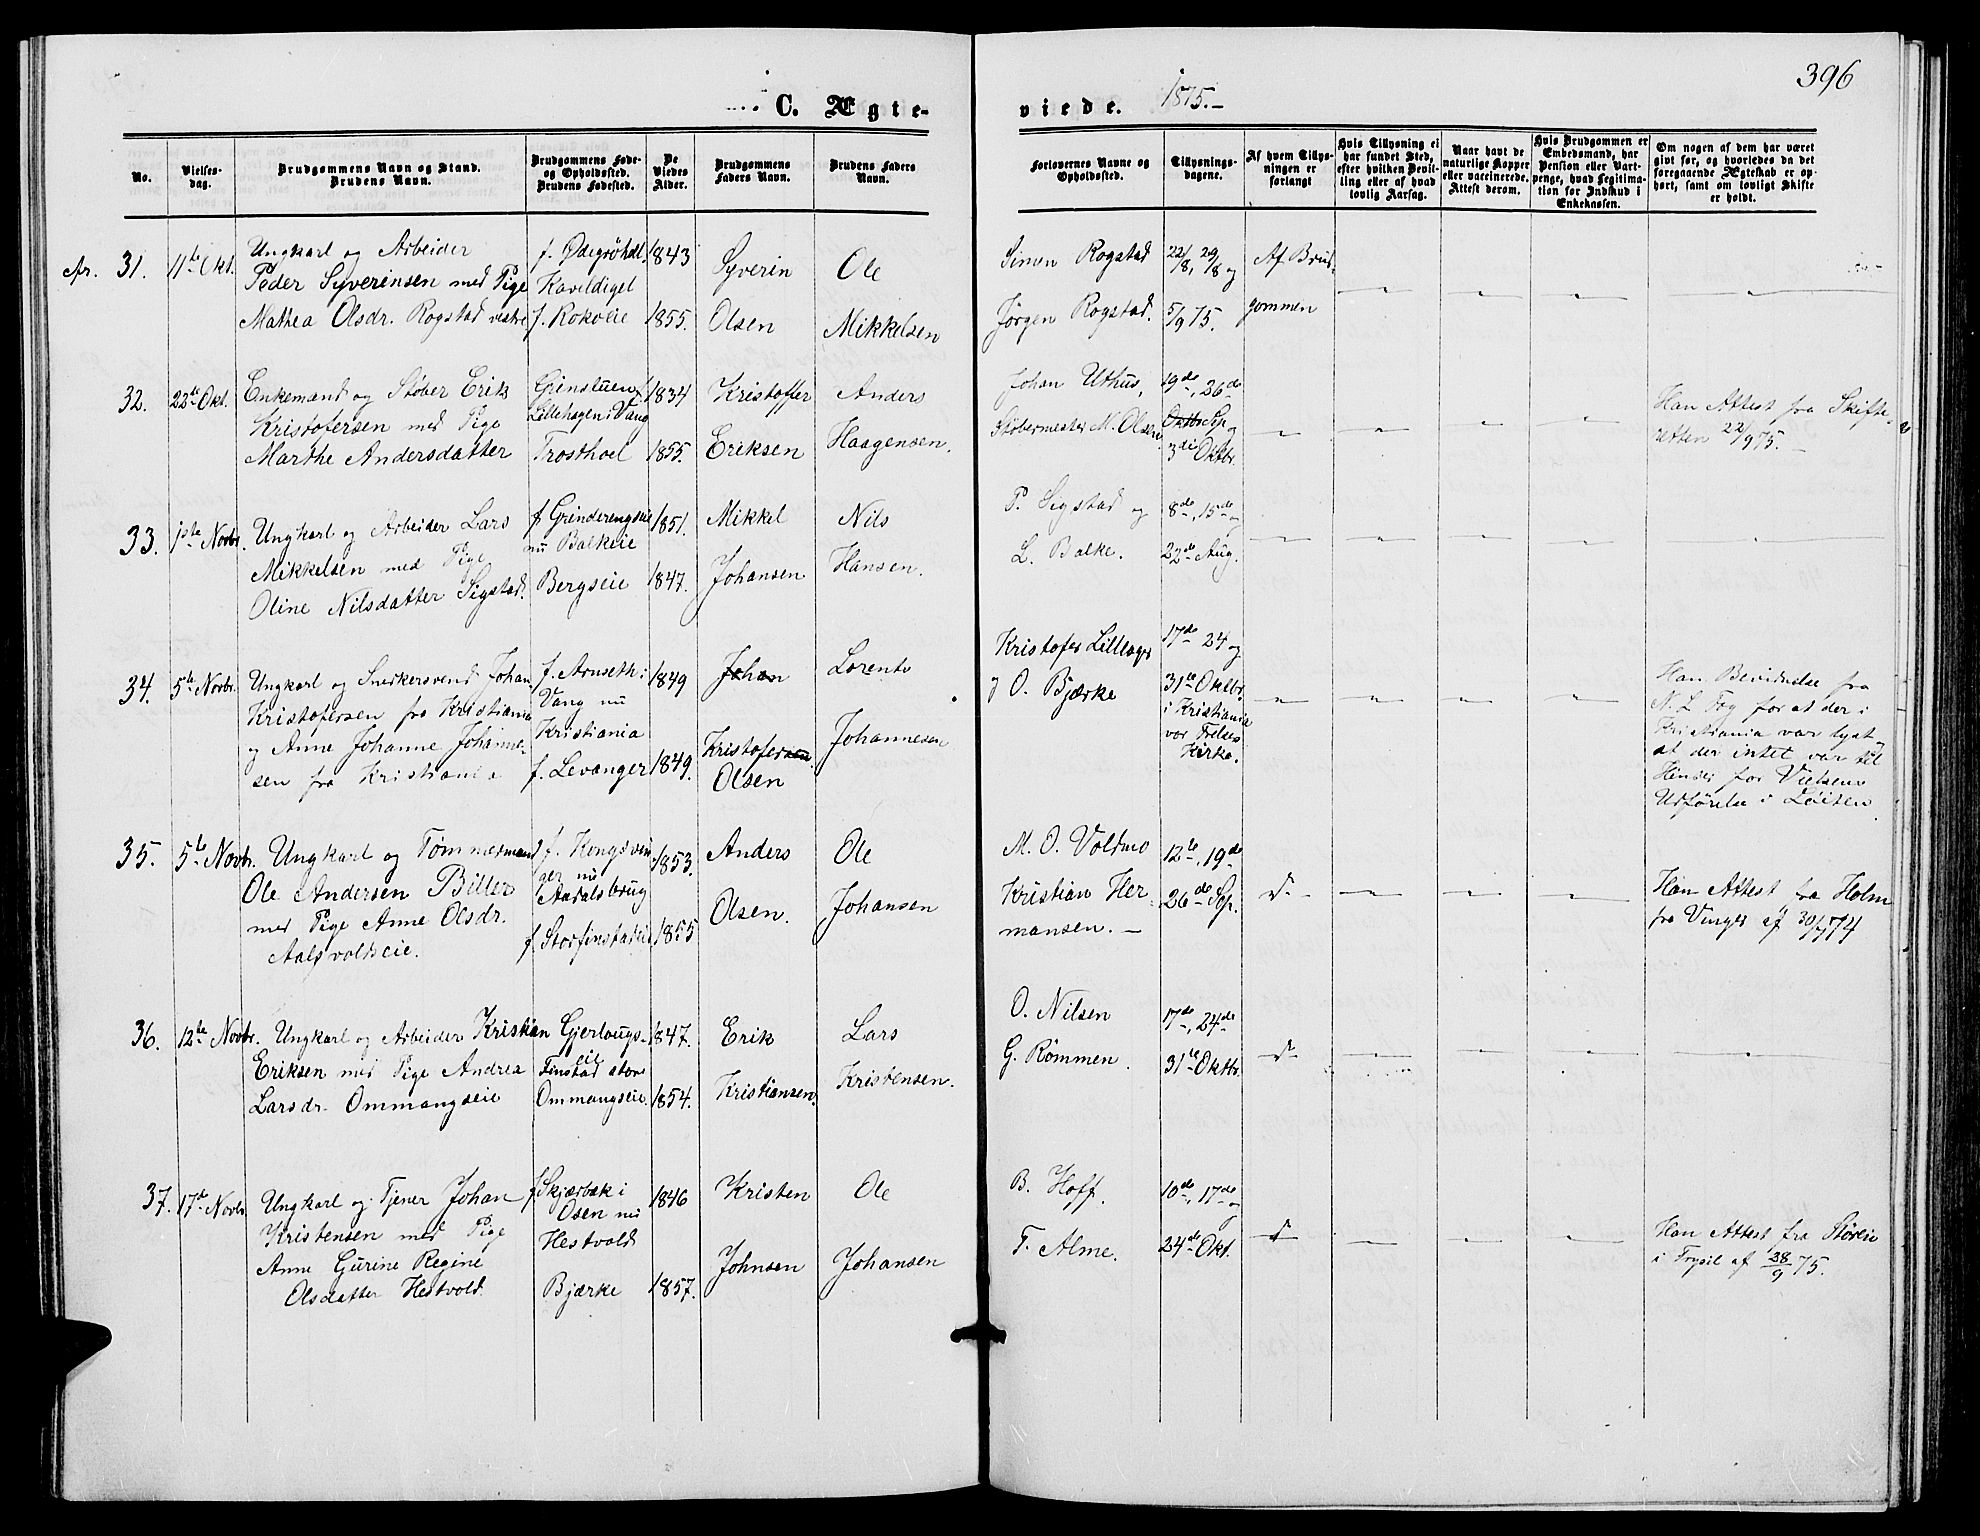 396
C. Ægte-
viede. 1875.-
No.
Vielses-
dag.
Brudgommens Navn og Stand.
Brudens Navn.
Brudgommens Føde-
og Opholdssted.
Brudens Fødested.
De
Viedes
Alder.
Brudgommens
Faders Navn.
Brudens Faders
Navn.
Forlovernes Navne og
Opholdssted.
Tillysnings-
dagene.
Af hvem Tillys-
ningen er
forlangt
Hvis Tillysning ei
har fundet Sted,
efter hvilken Bevil-
ling eller af hvad
lovlig Aarsag.
Naar havt de
naturlige Kopper
eller vaccinerede.
Attest derom.
Hvis Brudgommen er
Embedsmand, har
Pension eller Vart-
penge, hvad Legitima-
tion for Indskud i
Enkekassen.
Om nogen af dem har været
gift før, og hvorledes da det
foregaaende Ægteskab er op-
hørt, samt om lovligt Skifte
er holdt.
31. 11te Okt.
Ungkarl og Arbeider
Peder Syverinsen med Pige
Mathea Olsdr. Rogstad vestre
Kavildiget
f. Rokoeie
1843
1855.
Syverin
Olsen
Ole
Mikkelsen
Simen Rogstad
Jørgen Rogstad.
22/8, 29/8 og
5/9 75.
Af Brud-
gommen
32. 22de Okt.
Enkemand og Støber Erik
Kristofersen med Pige
Marthe Andersdatter
Grinstuen f.
Lillehagen i Vang
Trosthoel
1834
1855.
Kristoffer
Eriksen
Anders
Haagensen.
Johan Uthus,
Støbermester M. Olsen
19de, 26de
Oktbr Sep. og
3die Oktbr.
Han Attest fra Skifte-
retten 22/9 75.
33. 1ste Novbr.
Ungkarl og Arbeider Lars
Mikkelsen med Pige
Oline Nilsdatter Sigstad.
f Grinderengseie
nu Balkeie
Bergseie
1851.
1847.
Mikkel
Johansen
Nils
Hansen.
P. Sigstad og
L. Balke.
8de, 15de og
22de Aug.
34. 5te Novbr.
Ungkarl og Snerkersvend Johan
Kristofersen fra Kristiania
og Anne Johanne Johanne-
sen fra Kristiania
f. Arnseth i
Vang nu
Kristiania
f. Levanger
1849
1849.
Johan
Kristofersen
Olsen
Lorents
Johannesen
Kristofer Lilleager
O. Bjærke
17de 24 og
31te Oktbr.
i Kristiania
vor Frelses
Kirke.
Han Bevidnelse fra
N. L. Fog for at der i
Kristiania var lyst og
at der intet var til
Hinder for Vielsens
Udførelse i Løiten
35. 5te Novbr.
Ungkarl og Tømmermand
Ole Andersen Biller
med Pige Anne Olsdr.
Aalsvoldseie.
f. Kongsvin-
ger nu
Aadalsbrug
f. Storfinstadeie
1853.
1855
Anders
Olsen.
Ole
Johansen
M. O. Voldmo
Kristian Her-
mansen. -
12te, 19de
26de Sep.
Han Attest fra Holm
fra Vinger af 30/7 74
36. 12te Novbr.
Ungkarl og Arbeider Kristian
Eriksen med Pige Andrea
Larsdr. Ommangseie
Gjerlaugs-
eie
Finstad store
Ommangseie.
1847.
1854.
Erik
Kristiansen.
Lars
Kristensen.
O. Nilsen
G. Rømmen.
17de, 24de
31te Oktbr.
37. 17de Novbr.
Ungkarl og Tjener Johan
Kristensen med Pige
Anne Gurine Regine
Olsdatter Hestvold.
f Skjærbæk i
Osen nu
Hestvold
Bjærke
1846
1857.
Kristen
Johnsen
Ole
Johansen
B. Hoff.
T. Alme.
10de, 17de og
24de Okt.
Han Attest fra Støren
i Trysil af 28/9 75.